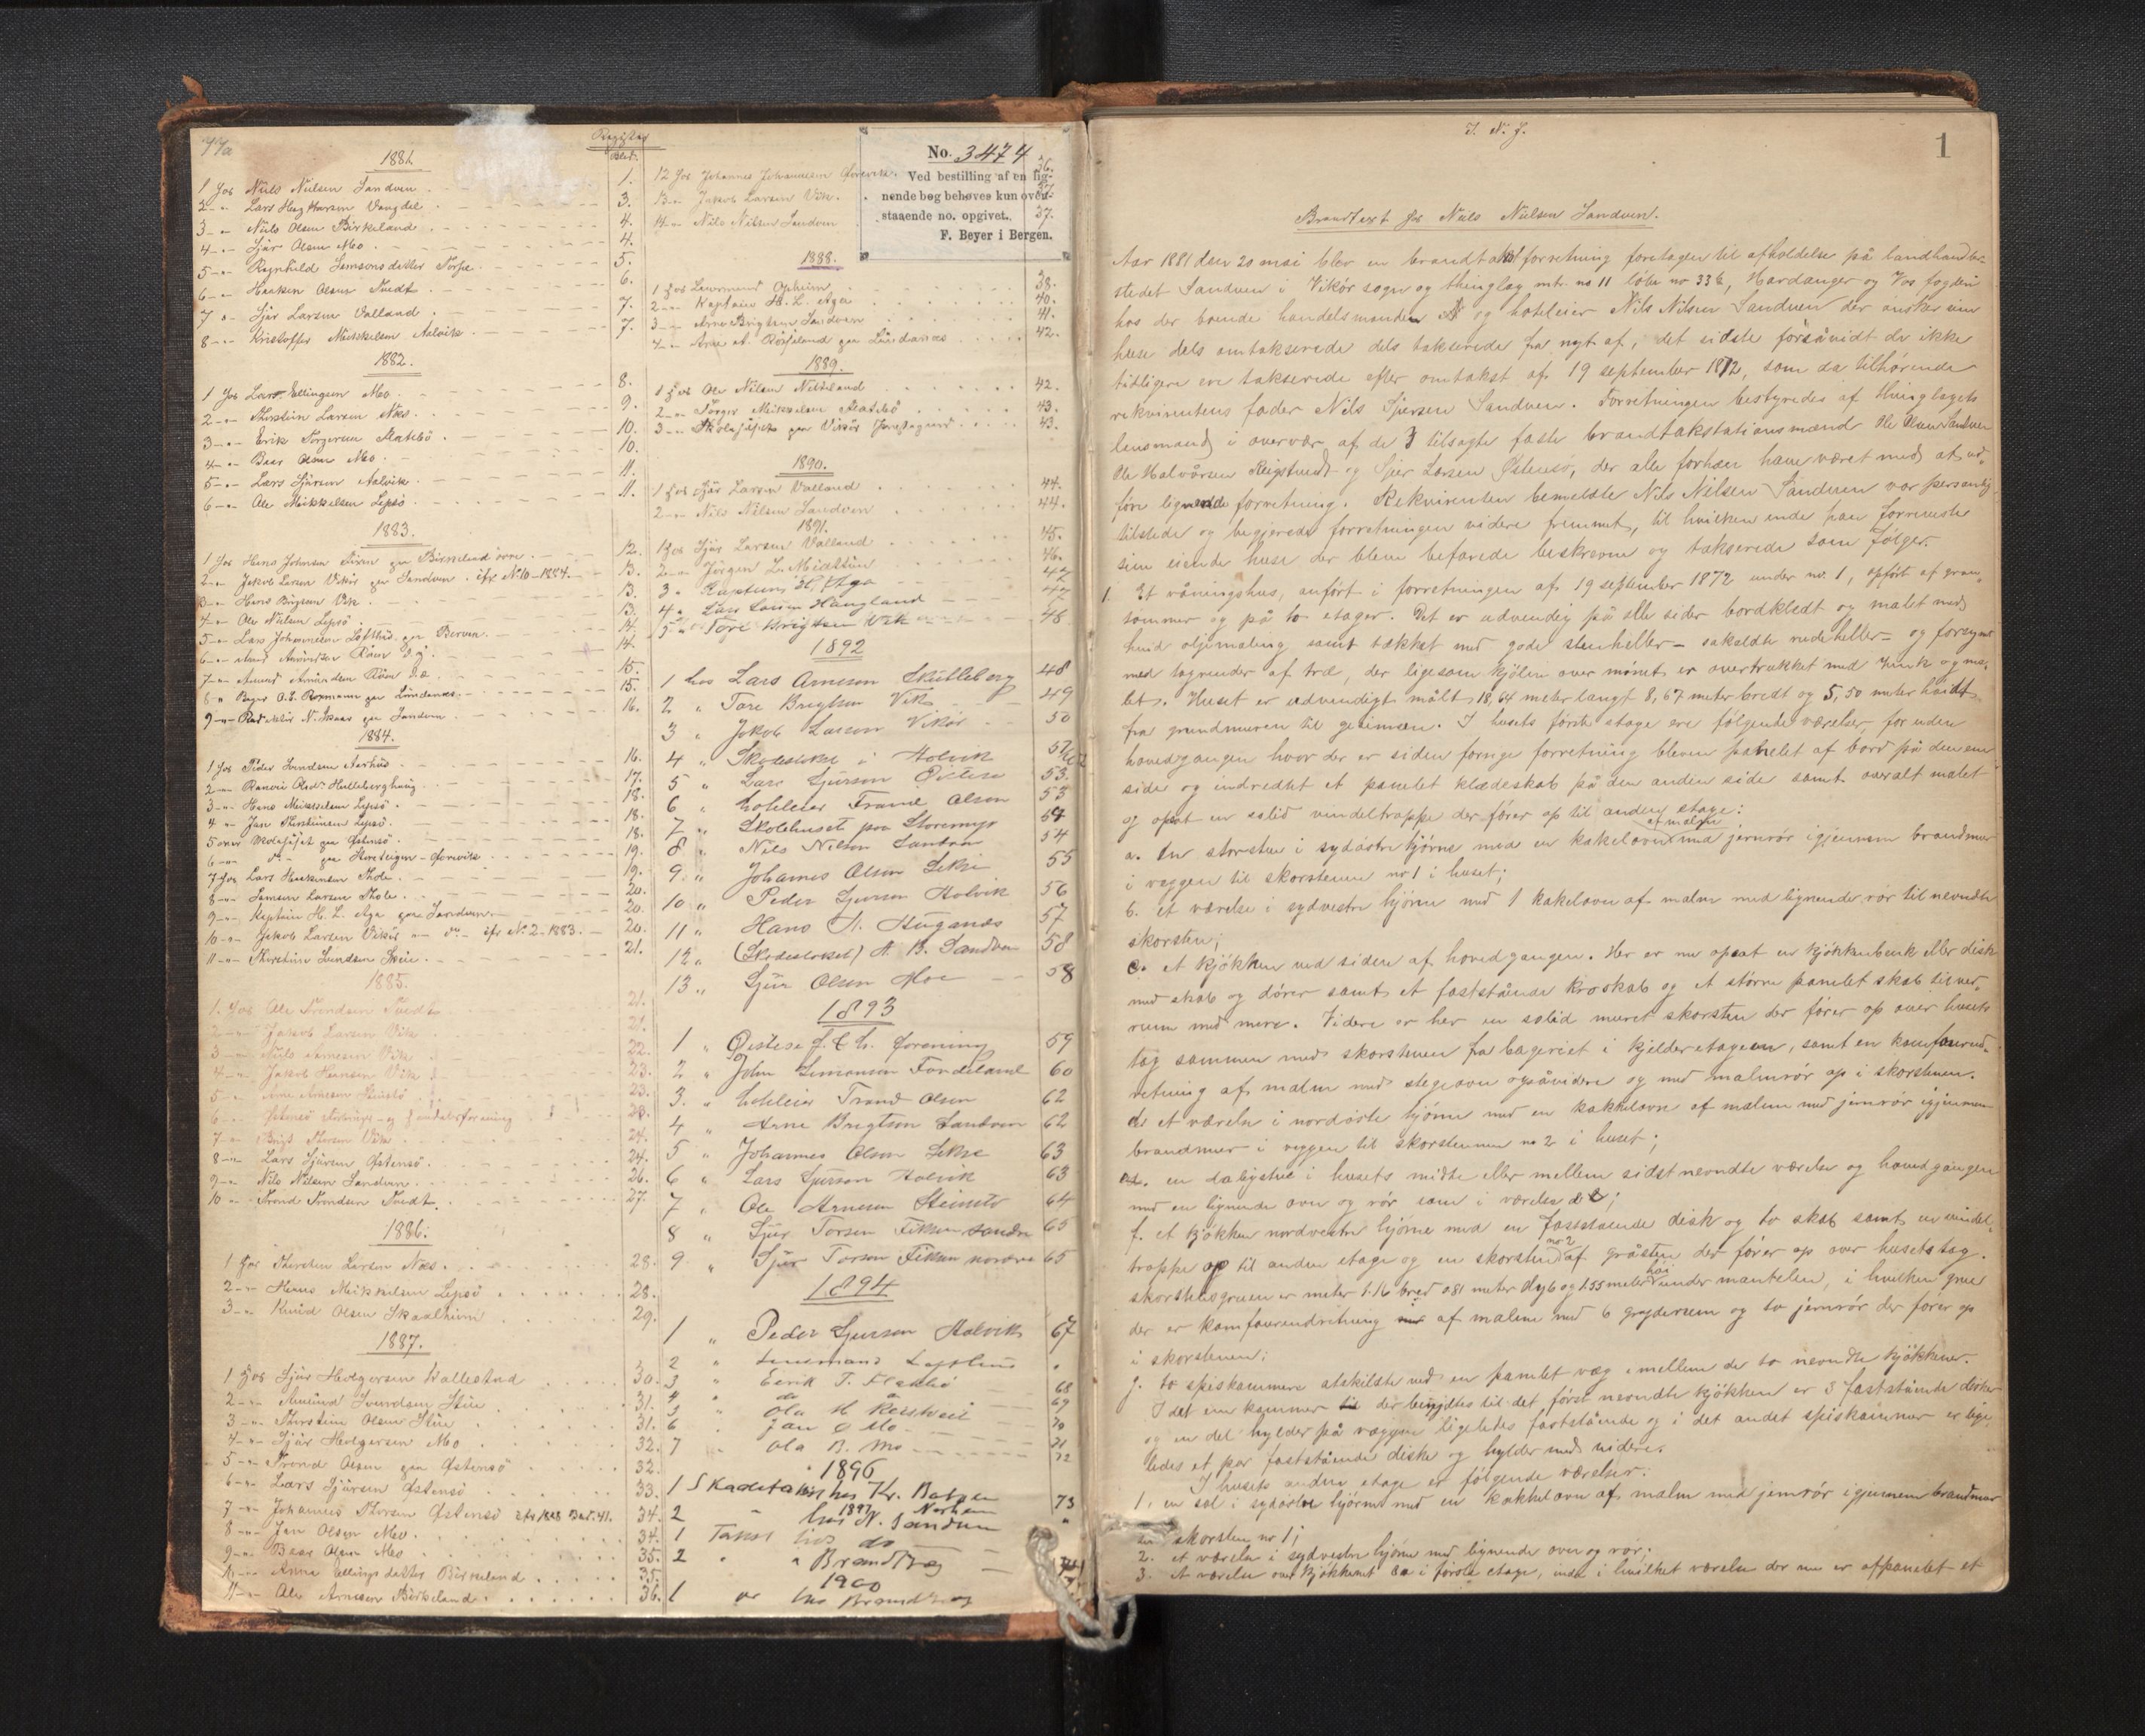 Register
Blad.
1881.
1 hos Niels Nielsen Sandven 1.
2 -"- Lars Vangdal 3.
3 -"- Niels Olsen Birkeland 4.
4 -"- Sjur Olsen Mo 4.
5 -"- Samsonsdatter Torpe 5.
6 -"- Haaken Olsen Tvedt 6.
7 -"- Sjur Larsen Valland 7.
8 -"- Kristoffer Mikkelsen Aalvik 7.
1882.
1 hos Lars Ellingsen Mo 8.
2 -"- Thorstein Larsen Næs 9.
3 -"- Erik Torgersen Flatebö 10.
4 -"- Olsen Mo 10.
5 -"- Lars Sjursen Aalvik 11.
6 -"- Ole Mikkelsen Lepsö 11.
1883.
1 hos Hans Johnsen paa Birkeland övre 12.
2 -"- Jakob Larsen Vikör paa Sandven. cfr No 10-1884. 13.
3 -"- Hans Vik 13.
4 -"- Ole Nielsen Lepsö 13.
5 -"- Lars Johannesen paa Berven 14.
6 -"- 14.
7 -"- 15.
8 " paa Lundanes 15.
9 -"- N. Skaar paa Sandven 16.
1884.
1 hos Peder Svendsen Aarhus 16.
2 -"- 17.
3 -"- Hans Mikkelsen Lepsö 18.
4 -"- Jan Thorsteinsen Lepsö 18.
5 over Skolehuset paa Östensö 18.
6 -"- do - paa 19.
7 hos Lars Haakensen Thole 19.
8 -"- Samson Larsen Thole 20.
9 -"- Kaptein H. L. Aga paa Sandven 20.
10 -"- Jakob Larsen Vikör - do - cfr No 2-1883. 20.
11 -"- Thorstein Svendsen 21.
1885.
1. hos Ole Trondsen Tvedt 21.
2 -"- Jakob Larsen Vik 21.
3 -"- Niels Vik 22.
4 -"- Jakob Hansen Vik 23.
5 -"- Arne Arnesen Steinstö 23.
6 -"- Östensö og Handelsforening 23.
7 -"- Thorsen Vik 24.
8 -"- Lars Sjursen Östensö 24.
9 -"- Nils Nilsen Sandven 26.
10 -"- Trond Trondsen Tvedt 27.
1886.
1 hos Thorstein Larsen Næs 28.
2 -"- Hans Mikkelsen Lepsö 28.
3 -"- Knud Olsen Skaalheim 29.
1887.
1 hos Sjur Holgersen Kallestad 30.
2 -"- Amund Svendsen 31.
3 -"- Thorstein Olsen 31.
4 -"- Sjur Holgersen Mo 32.
5 -"- Trond Olsen paa Östensö 32.
6 -"- Lars Sjursen Östensö 33.
7 -"- Johannes Thorsen Östensö cfr 1888 Bad. 41. 34.
8 -"- Jan Olsen Mo 34.
9 -"- Olsen Mo 35.
10 -"- Anna Ellingsdatter Birkeland 35.
11 -"- Ole Arnesen Birkeland 36.
12 hos Johannes Johannesen 36.
13 -"- Jakob Larsen Vik 37.
14 -"- Nils Nilsen Sandven 37.
No. 3474
Ved bestilling af en lig-
nende bog behøves kun oven-
staaende no. opgivet.
F. Beyer i Bergen.
1888.
1 hos Lensmand Opheim 38.
2 -"- Kaptein H. L. Aga 40.
3 -"- Arne Brigtsen Sandven 41.
4 -"- Arne A. paa Lundanes 42.
1889.
1 hos Ole Nilsen 42.
2 -"- Torger Mikkelsen Flatebö 43.
3 -"- Skolehuset paa Vikör 43.
1890.
1 hos Sjur Larsen Valland 44.
2 -"- Nils Nilsen Sandven 44.
1891.
1 hos Sjur Larsen Valland 45.
2 -"- Jörgen L. Midttun 46.
3 " Kaptein H. L. Aga 47
4 " Lars Larsen Haugland 47
5 " Tore Brigtsen Vik 48
1892
1 hos Lars Arneson Skutleberg 48
2 " Tore Brigtsen Vik 49
3 " Jakob Larson Vikör 50
4 " Skolestove i Aalvik
5 " Lars Sjurson Östese 53.
6 " hoteleier Trond Olsen 53
7 " Skolehuset paa Storemyr 54
8 " Nils Nilson Sandven 54
9 " Johannes Olson Lekve 55
10 " Peder Sjurson Aalvik 56
11 " Hans A. 57
12 " (Skolestovet) A. B. Sandven 58
13 " Sjur Olsen Moe 58
1893
1 " Östese f. & h. forening 59
2 " John Simonson 60
3. " hoteleier Trond Olson 62
4 " Arne Brigtson Sandven 62
5 " Johannes Olson Lekve 63
6 " Lars Sjurson Aalvik 63
7 " Ole Arneson Steinstö 64
8 " Sjur Torson Fiksen söndre 65
9 " Sjur Torson Fiksen nordre 65
1894
1 " Peder Sjurson Aalvik 67
2 " Lensmand "
3 " Eirik T. Flatebö 68
4 " do 69
5 " Ola M.
6 " Jan O Mo 70
7 " Ola B. Mo 72
1896
1 Skadetakst hos Kr. 73
2 " hos N. Sandven "
1897
1 Takst hos do
2 " " Brandtræg
1900
1 hos Brandtræg
I. N. J.
1
Brandtaxt hos Niels Nielsen Sandven.
Aar 1881 den 20 mai blev en brandtakstforretning foretagen til afholdelse på landhandler-
stedet Sandven i Vikör sogn og thinglag mtr. no 11 löbe no 33b, Hardanger og Vos fogderi
hos der boende handelsmand og hoteleier Nils Nilsen Sandven der önsker sine
huse dels omtakserede dels takserede fra nyt af, det sidste försåvidt de ikke
tidligere ere takserede efter omtakst af 19 september 1872, som da tilhörende
rekvirentens fader Nils Sjursen Sandven. Forretningen bestyredes af thinglagets
lensmand i overvær af de 3 tilsagte faste brandtakstationsmænd Ole Olsen Sandven
Ole Halvörsen og Sjur Larsen Östensö, der alle forhen have været med at ud-
före lignende forretning. Rekvirenten bemeldte Nils Nilsen Sandven var personlig
tilstede og begjerede forretningen videre fremmet, til hvilken ende han foreviste
sine eiende huse der bleve befarede beskrevne og takserede som fölger.
1. Et våningshus, anfört i forretningen af 19 september 1872 under no. 1, opfört af gran-
tömmer og på to etager. Det er udvendig på alle sider bordklædt og malet med
hvid oljemaling samt tækket med gode stenheller - såkaldte rudeheller - og forsynet
med tagrender af træ, der ligesom kjölen over mönet er overtrukket med zink og ma-
let. Huset er udvendigt målt 18,64 meter langt 8,67 meter bredt og 5,50 meter höidt
fra grundmuren til gesimsen. I husets förste etage ere fölgende værelser, foruden
hovedgangen hvor der er siden forrige forretning bleven panelet af bord på den ene
side og indredtet et panelet klædeskab på den anden side samt overalt malet
og opsat en solid vindeltrappe der förer op til anden etage:
a. En storstue i sydöstre hjörne med en kakelovn af malm med jernrör igjennem brandmur
i væggen til skorstenen no 1 i huset;
b. et værelse i sydvestre hjörne med 1 kakelovn af malm med lignende rör til nevndte
skorsten;
c. et kjökken ved siden af hovedgangen. Her er nu opsat en kjökkenbenk eller disk
med skab og dörer samt et faststående kroskab og et större panelet skab til ver-
rum med mere. Videre er her en solid muret skorsten der förer op over husets
tag sammen med skorstenen fra bageriet i kjelderetagen, samt en komfurind-
retning af malm med stegeovn og såvidere og med malmrör op i skorstenen.
d. et værelse i nordöstre hjörne med en kakkelovn af malm med jernrör igjennem
brandmur i væggen til skorstenen no 2 i huset;
e. en dagligstue i husets midte eller mellem sidst nevndte værelse og hovedgangen
med en lignende ovn og rör som i værelse d;
f. et kjökken nordvestre hjörne med en faststående disk og to skab samt en vindel-
trappe op til anden etage og en skorsten no 2 af gråsten der förer op over husets tag.
skorstensgruen er meter 1.16 bred 0.81 meter dyb og 1.55 meter höi under mantelen, i hvilken grue
der er komfurindretning af malm med 6 gryderum og to jernrör der förer op
i skorstenen;
g. to spiskammere adskildte ved en panelet væg imellem de to nevndte kjökkener.
I det ene kammer der benyttes til det först nevndte kjökken er 3 faststående diske
og en del hylder på væggene ligeledes faststående og i det andet spiskammer er lige-
ledes et par faststående diske og hylder med videre.
I husets anden etage er fölgende værelser:
1. en sal i sydöstre hjörne med en kakkelovn af malm med jernrör igjennem brandmur
skorsten no 1;
2. et værelse i sydvestre hjörne med lignende ovn og rör;
3. et værelse over kjökkenet i förste etage, inde i hvilket værelse der nu er afpanelet et